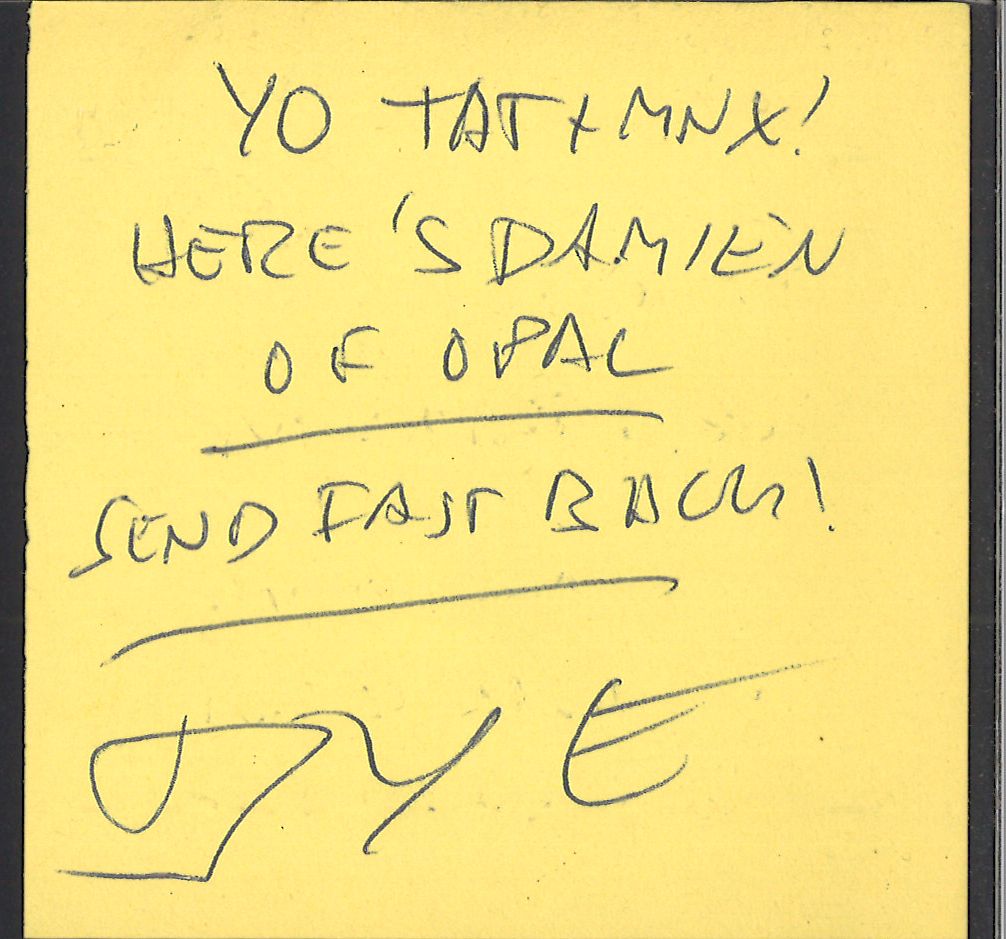 YO TAT + MNX!
HERE'S DAMIEN
OF OPAL
SEND FAST BACK!